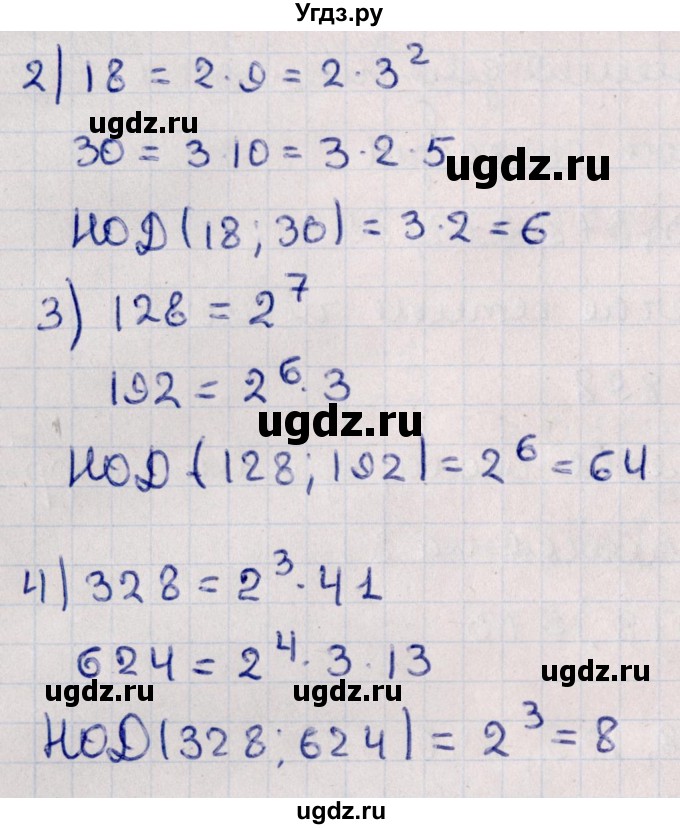 Угдз.ру
2) 18 = 2·9 = 2·3²
ugdz.ru
30 = 3·10 = 3·2·5
ugdz.ru
НОД(18; 30) = 3·2 = 6
3) 128 = 2⁷
192 = 2⁶·3
ugdz.ru
НОД(128; 192) = 2⁶ = 64
4) 328 = 2³·41
624 = 2⁴·3·13
ugdz.ru ugdz.ru ugdz.ru
НОД(328; 624) = 2³ = 8
ugdz.ru